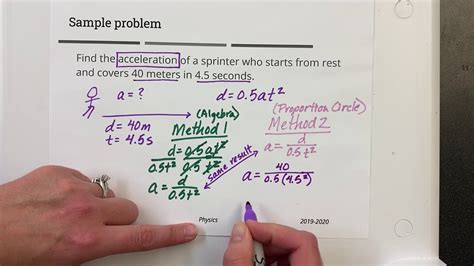 Sample problem
Find the acceleration of a sprinter who starts from rest
and covers 40 meters in 4.5 seconds.
a = ?
d = 0.5at²
d = 40m
t = 4.5s
(Algebra)
Method 1
d = 0.5at²
0.5t² 0.5t²
a = d
0.5t²
same result
(Proportion Circle)
Method 2
a = d
0.5t²
a = 40
0.5(4.5²)
Physics
2019-2020